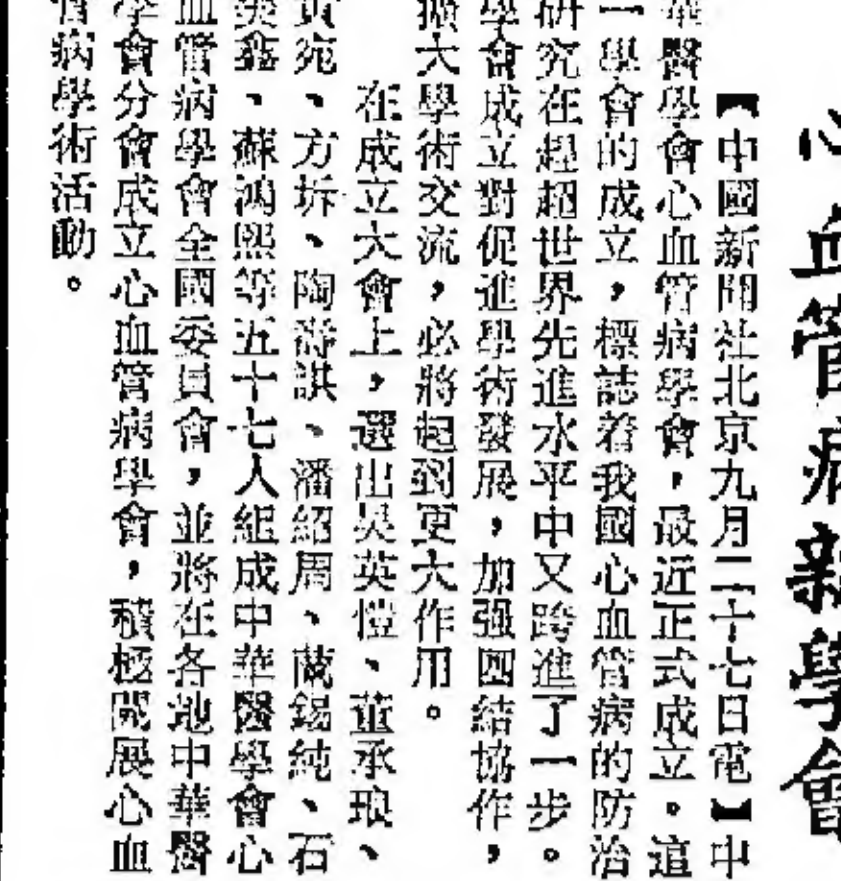 心血管病新學會
【中國新聞社北京九月二十七日電】中
華醫學會心血管病學會，最近正式成立。這
一學會的成立，標誌着我國心血管病的防治
研究在趕超世界先進水平中又跨進了一步。
學會成立對促進學術發展，加强團結協作，
擴大學術交流，必將起到更大作用。
在成立大會上，選出吳英愷、董承琅、
黃宛、方圻、陶壽淇、潘紹周、蘭錫純、石
美鑫、蘇鴻熙等五十七人組成中華醫學會心
血管病學會全國委員會，並將在各地中華醫
學會分會成立心血管病學會，積極開展心血
管病學術活動。